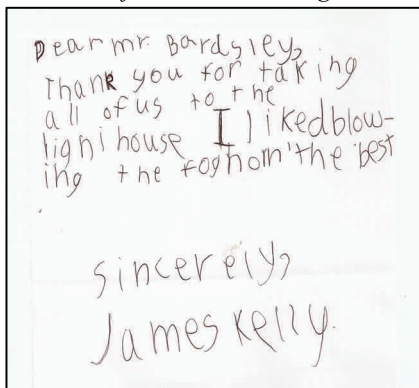 Dear mr. Bardsley,
Thank you for taking
all of us to the
lighihouse I likedblow-
ing the foghorn the best
sincerely,
James Kelly.